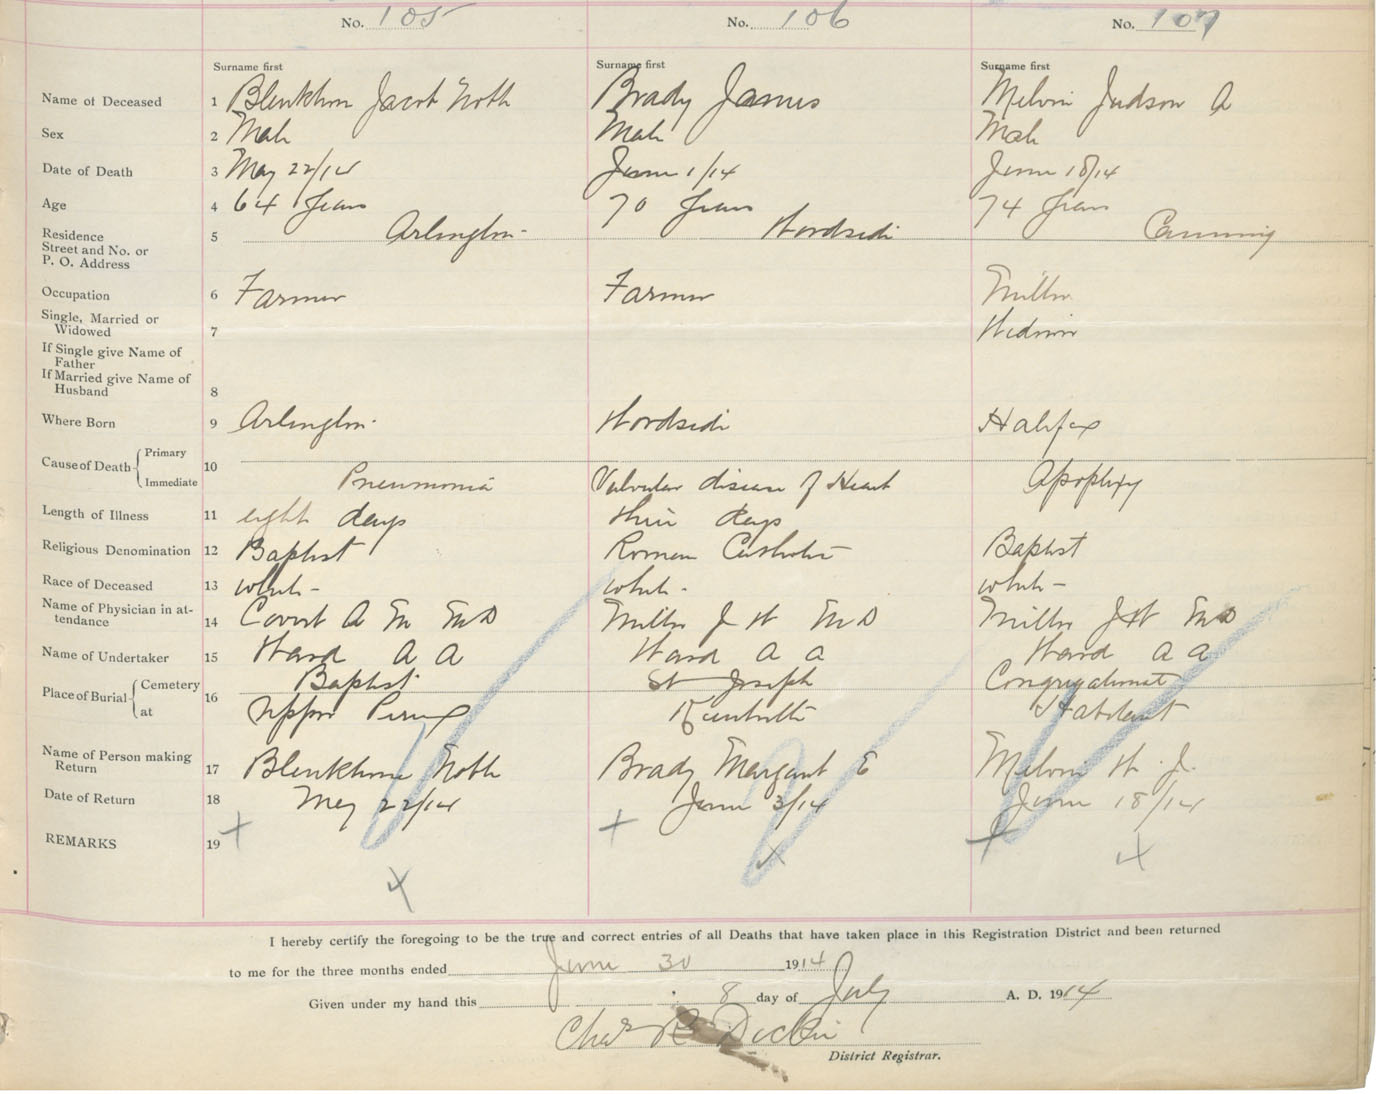 No. 105 No. 106 No. 107
Surname first Surname first Surname first
Name of Deceased 1 Blenkhorn Jacob North Brady James Melvin Judson A
Sex 2 Male Male Male
Date of Death 3 May 22/14 June 1/14 June 18/14
Age 4 64 Years 70 Years 74 Years
Residence Street and No. or P. O. Address 5 Arlington Woodside Canning
Occupation 6 Farmer Farmer Miller
Single, Married or Widowed 7 Widower
If Single give Name of Father
If Married give Name of Husband 8
Where Born 9 Arlington Woodside Halifax
Cause of Death Primary Immediate 10 Pneumonia Valvular disease of Heart Apoplexy
Length of Illness 11 eight days three days
Religious Denomination 12 Baptist Roman Catholic Baptist
Race of Deceased 13 white white white
Name of Physician in attendance 14 Covert A M MD Miller J W MD Miller J W MD
Name of Undertaker 15 Ward A A Ward A A Ward A A
Place of Burial Cemetery 16 Baptist St Joseph Congregationalist
at Upper Pereau Kentville Habitant
Name of Person making Return 17 Blenkhorn Noble Brady Margaret E Melvin W. J.
Date of Return 18 May 22/14 June 3/14 June 18/14
REMARKS 19 + + +
x x x
I hereby certify the foregoing to be the true and correct entries of all Deaths that have taken place in this Registration District and been returned
to me for the three months ended June 30 1914
Given under my hand this 8 day of July A. D. 1914
Chas R Dickie
District Registrar.